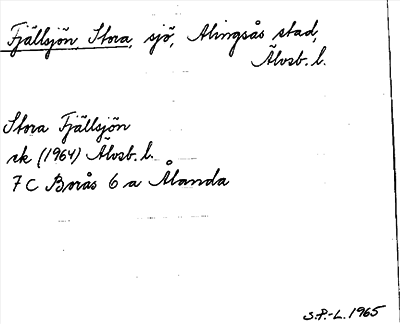 Fjällsjön Stora, sjö, Alingsås stad,
Älvsb. l.
Stora Fjällsjön
rk (1964) Älvsb. l.
7 C Borås 6 a Ålanda
S.P.-L. 1965